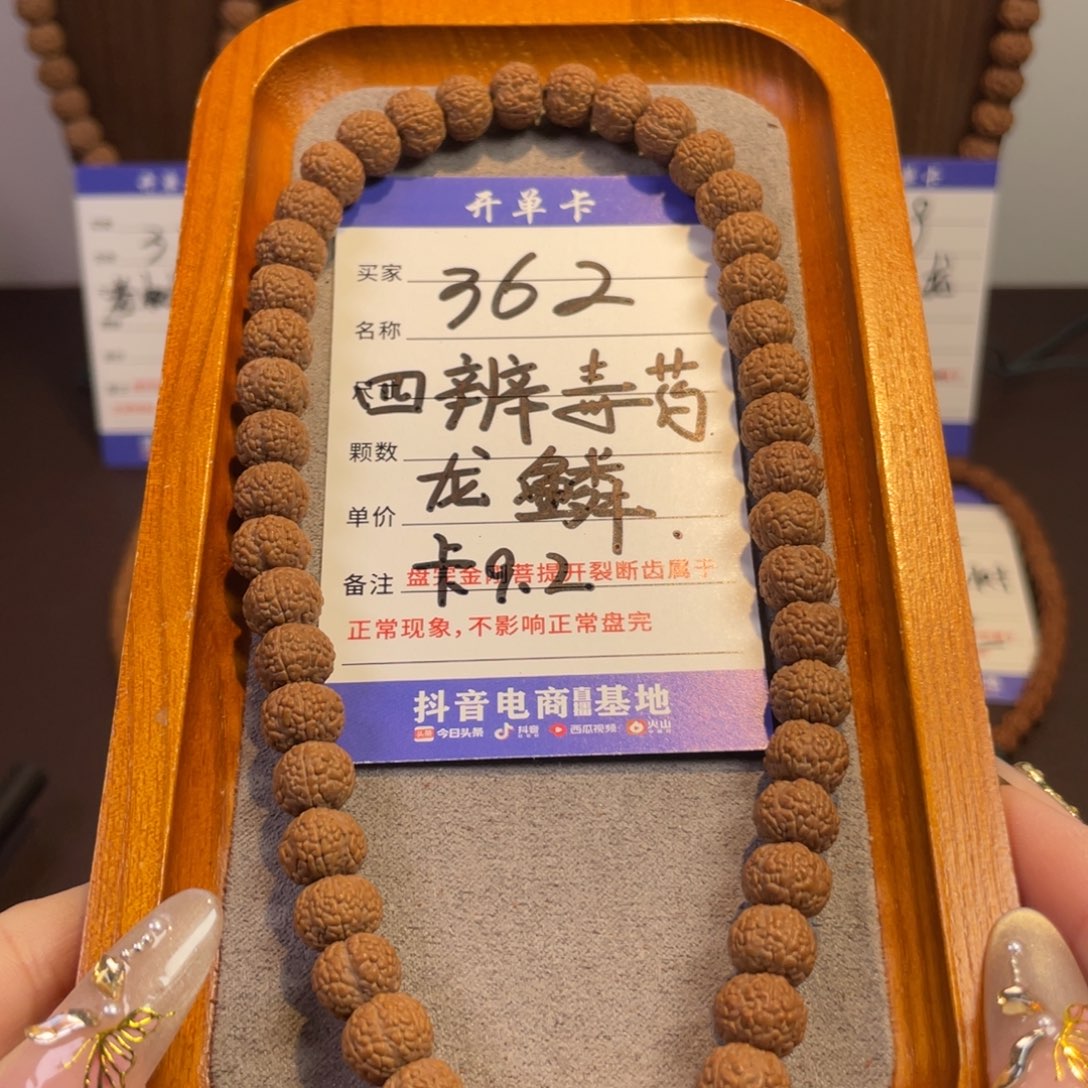 开单卡
买家 362
名称
尺寸 四辨毒药
颗数
龙鳞
单价
备注 卡9.2
盘完金刚菩提开裂断齿属于
正常现象,不影响正常盘完
抖音电商直播基地
今日头条 抖音 西瓜视频 火山